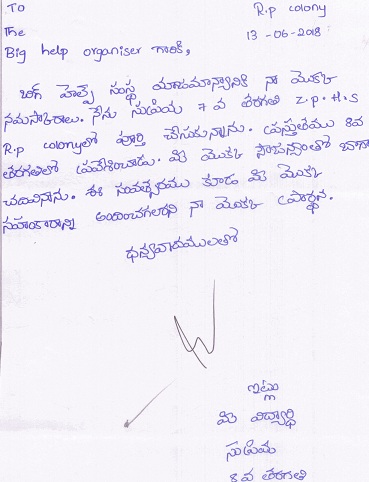 To
R.p colony
The
13-06-2018
Big help organiser గారికి,
బిగ్ హెల్ప్ సంస్థ యాజమాన్యానికి నా యొక్క
నమస్కారాలు. నేను సుప్రియ 7 వ తరగతి Z.P.H.S
R.p colonyలో పూర్తి చేసుకున్నాను. ప్రస్తుతము 8వ
తరగతిలో ప్రవేశించాను. మీ యొక్క సహాయంతో బాగా
చదివినాను. ఈ సంవత్సరము కూడా మీ యొక్క
సహకారాన్ని అందించగలరని నా యొక్క ప్రార్థన.
ధన్యవాదములతో
ఇట్లు
మీ విద్యార్థి
సుప్రియ
8 వ తరగతి